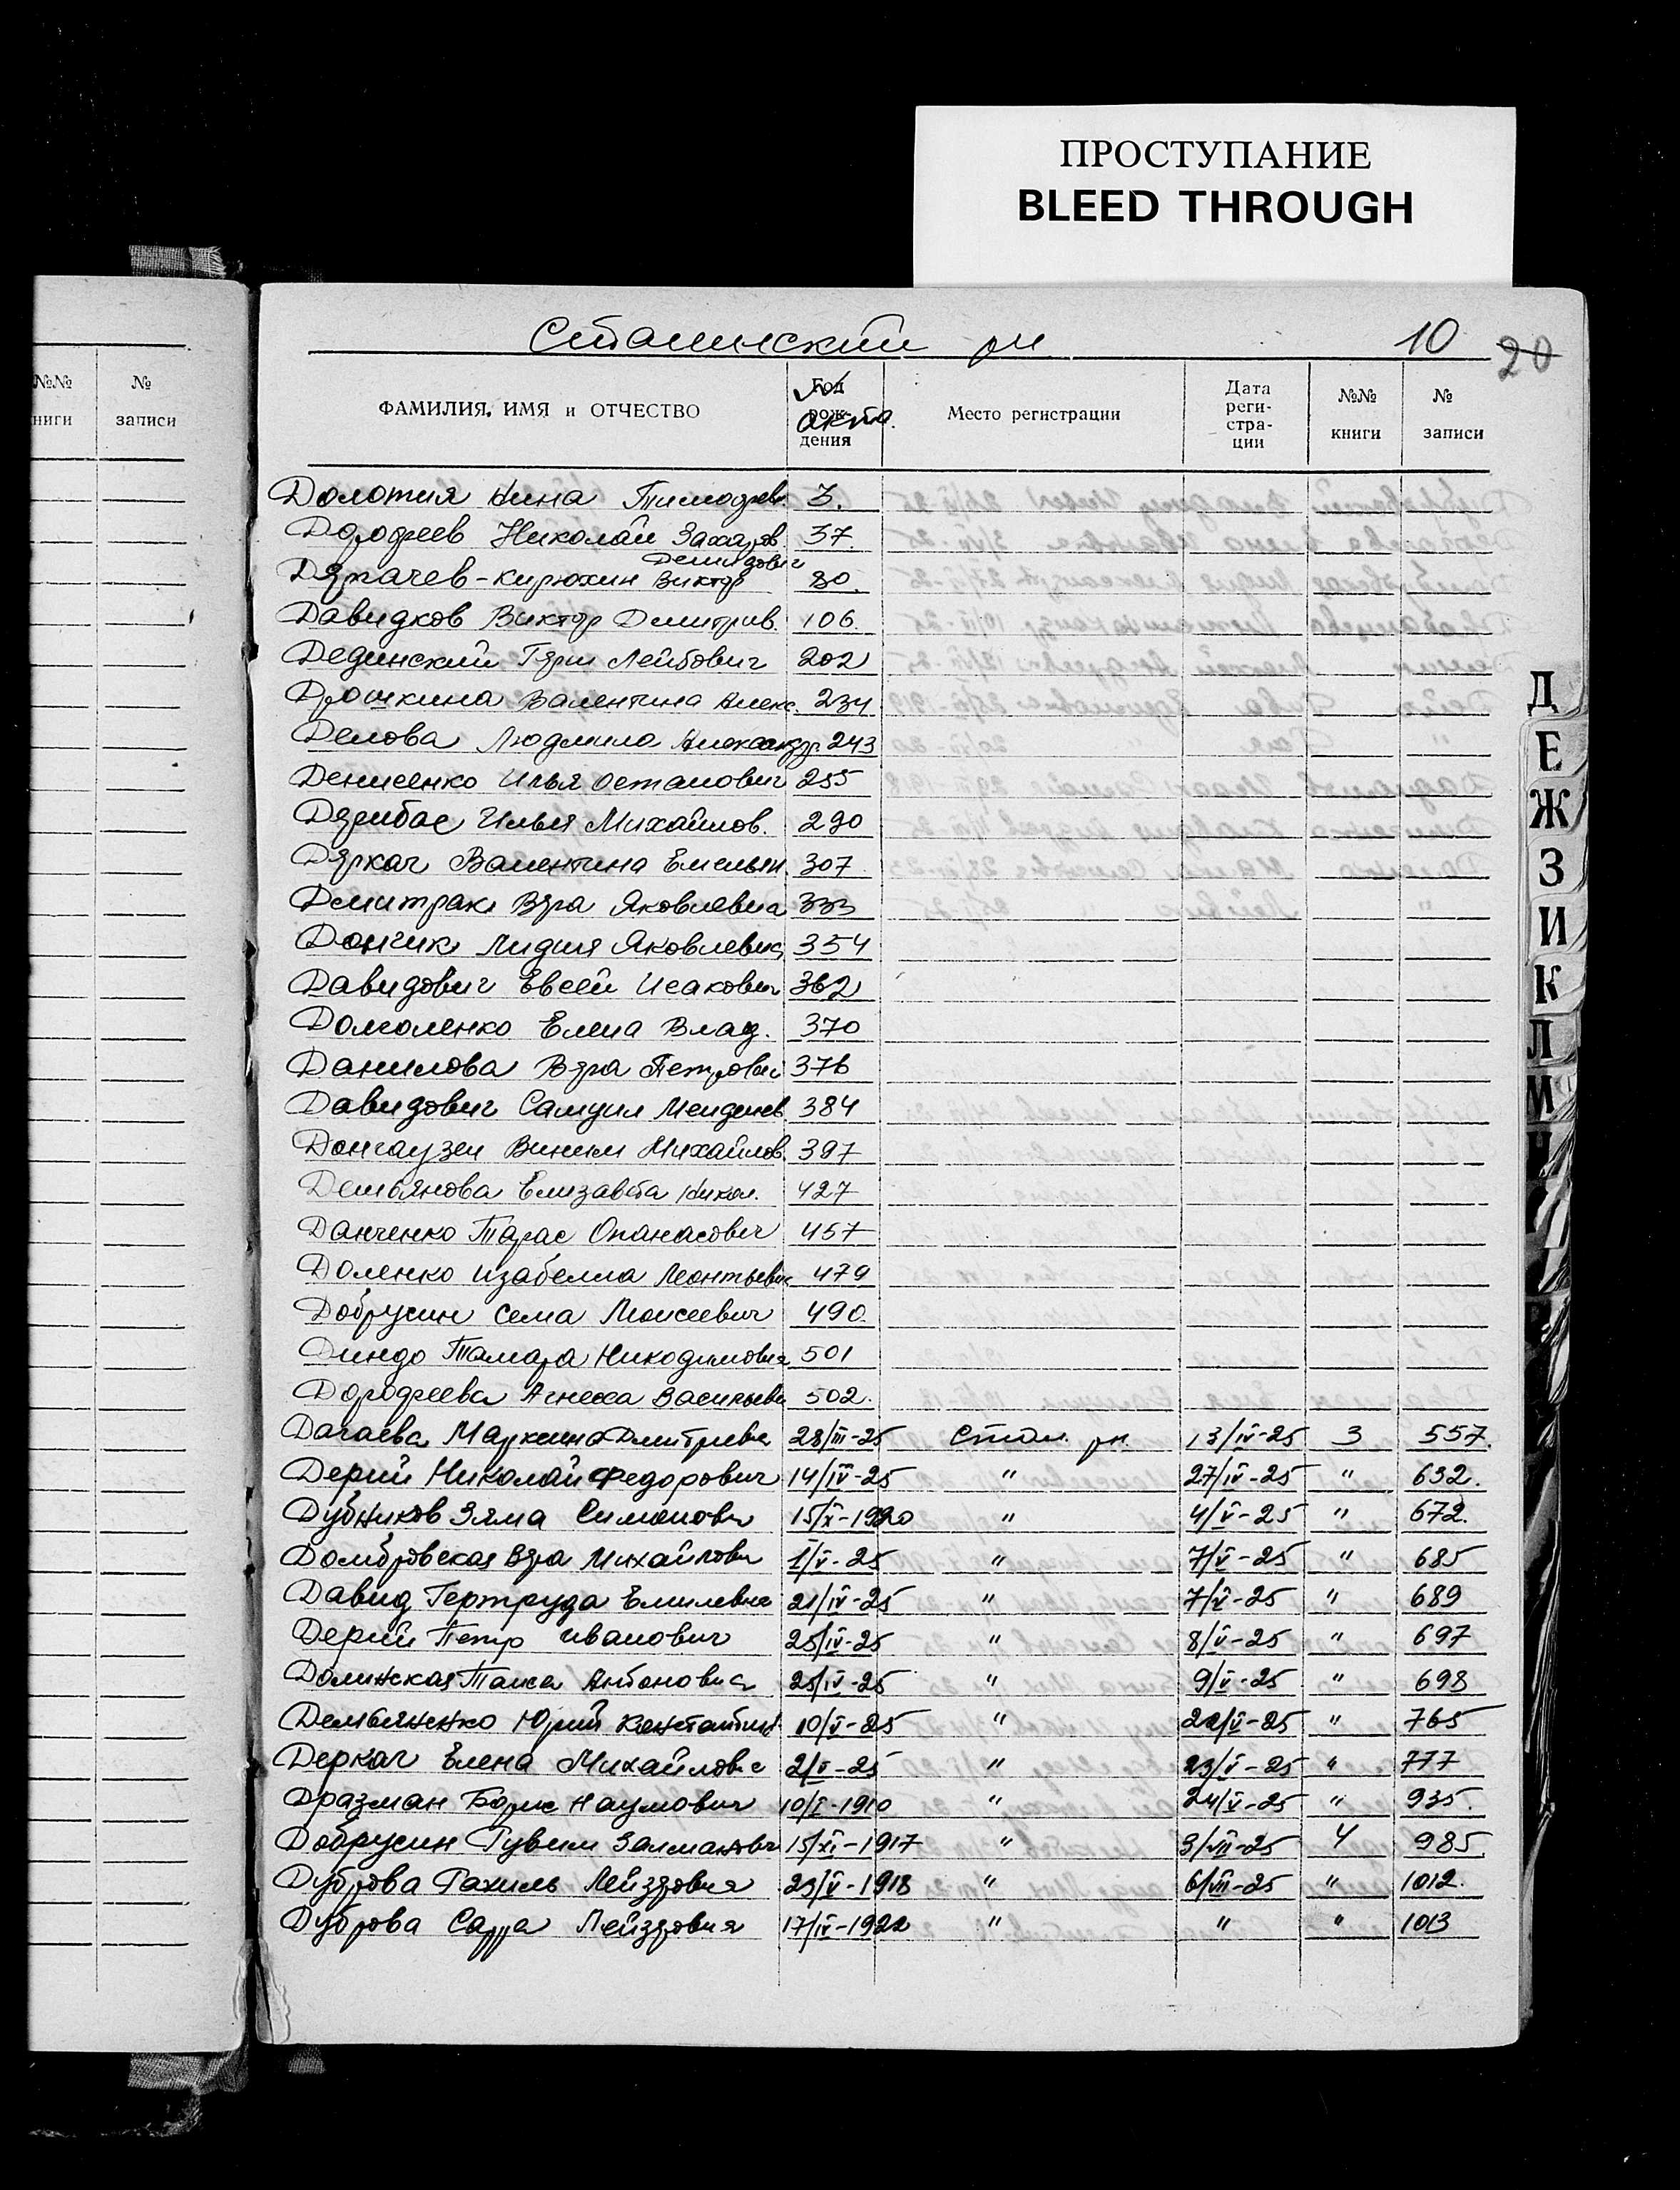 ПРОСТУПАНИЕ
BLEED THROUGH
Сталинский рн 10 20
№№ книги № записи
ФАМИЛИЯ, ИМЯ и ОТЧЕСТВО Год рождения № акта. Место регистрации Дата регистрации №№ книги № записи
Долотия Нина Тимофеев. 3.
Дорофеев Николай Захаров 37.
Демидович
Дергачев-Кирюхин Виктор 80.
Давидков Виктор Дмитрив. 106.
Дединский Гери Лейбович 202
Дрошкина Валентина Алекс. 234
Делова Людмила Александр. 243
Денисенко Илья Остапович 255
Дерибас Илья Михайлов. 290
Деркач Валентина Емельян. 307
Дмитрак Вера Яковлевна 333
Дончик Лидия Яковлевна 354
Давидович Евсей Исакович 362
Домоленко Елена Влад. 370
Данилова Вера Петровн 376
Давидович Самуил Менделев 384
Донгаузен Вилим Михайлов. 397
Демьянова Елизавета Никол. 427
Данченко Тарас Опанасович 457
Доленко Изабелла Леонтьевн 479
Добрусин Сема Моисеевич 490.
Диндо Тамара Никодимовна 501
Дорофеева Агнеса Васильевн 502.
Дагаева Марксина Дмитриевн 28/III-25 Стал. рн. 13/IV-25 3 557.
Дерий Николай Федорович 14/IV-25 " 27/IV-25 " 632.
Дубников Зяма Симонович 15/X-1920 " 4/V-25 " 672.
Домбровская Вера Михайловн 1/V-25 " 7/V-25 " 685
Давид Гертруда Емилевна 21/IV-25 " 7/V-25 " 689
Дерий Петр Иванович 25/IV-25 " 8/V-25 " 697
Долинская Таиса Антоновна 25/IV-25 " 9/V-25 " 698
Демьяненко Юрий Константин. 10/V-25 " 22/V-25 " 765
Деркач Елена Михайловна 2/V-25 " 23/V-25 " 777
Дразман Борис Наумович 10/I-1910 " 24/V-25 " 935.
Добрусин Рувим Залманович 15/XI-1917 " 3/VII-25 4 985.
Дуброва Рахиль Лейзеровна 23/V-1918 " 6/VII-25 " 1012.
Дуброва Сарра Лейзеровна 17/IV-1922 " " " 1013
Д
Е
Ж
З
И
К
Л
М
Н